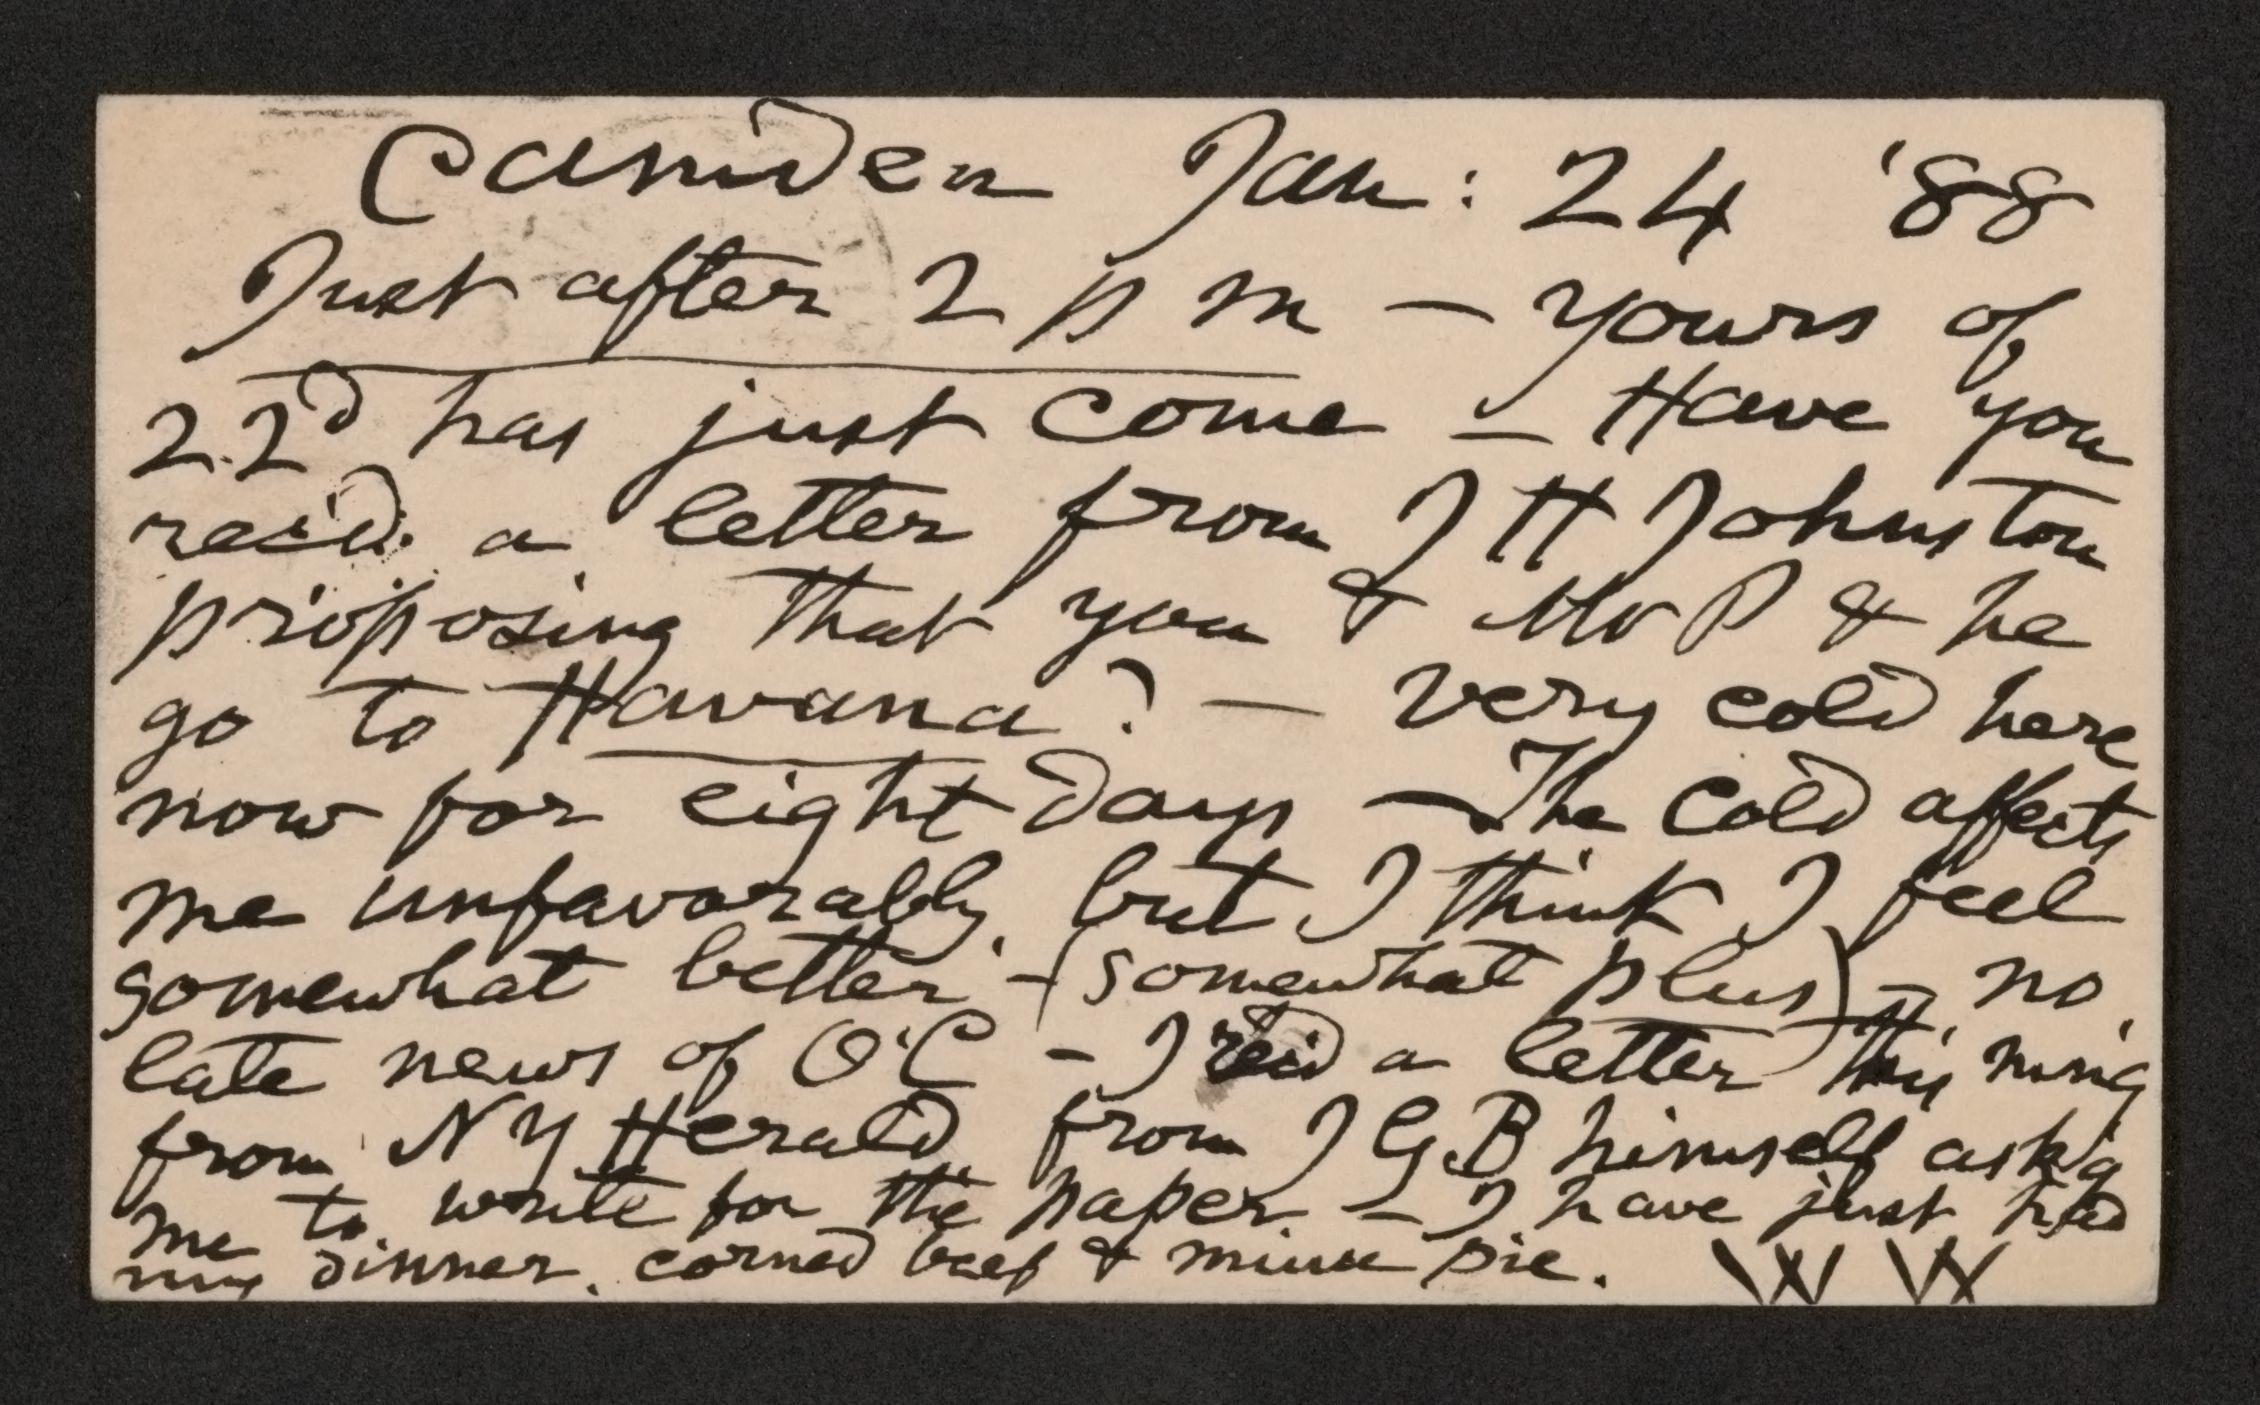 Camden Jan: 24 '88
Just after 2 p m — Yours of
22d has just come — Have you
rec'd a letter from J H Johnston
proposing that you & Mr P & he
go to Havana? — Very cold here
now for eight days — The cold affects
me unfavorably, but I think I feel
somewhat better — (somewhat plus) — no
late news of O'C — I rec'd a letter this m'ng
from N Y Herald from J G B himself ask'g
me to write for the paper — I have just had
my dinner, corned beef & mince pie. W W